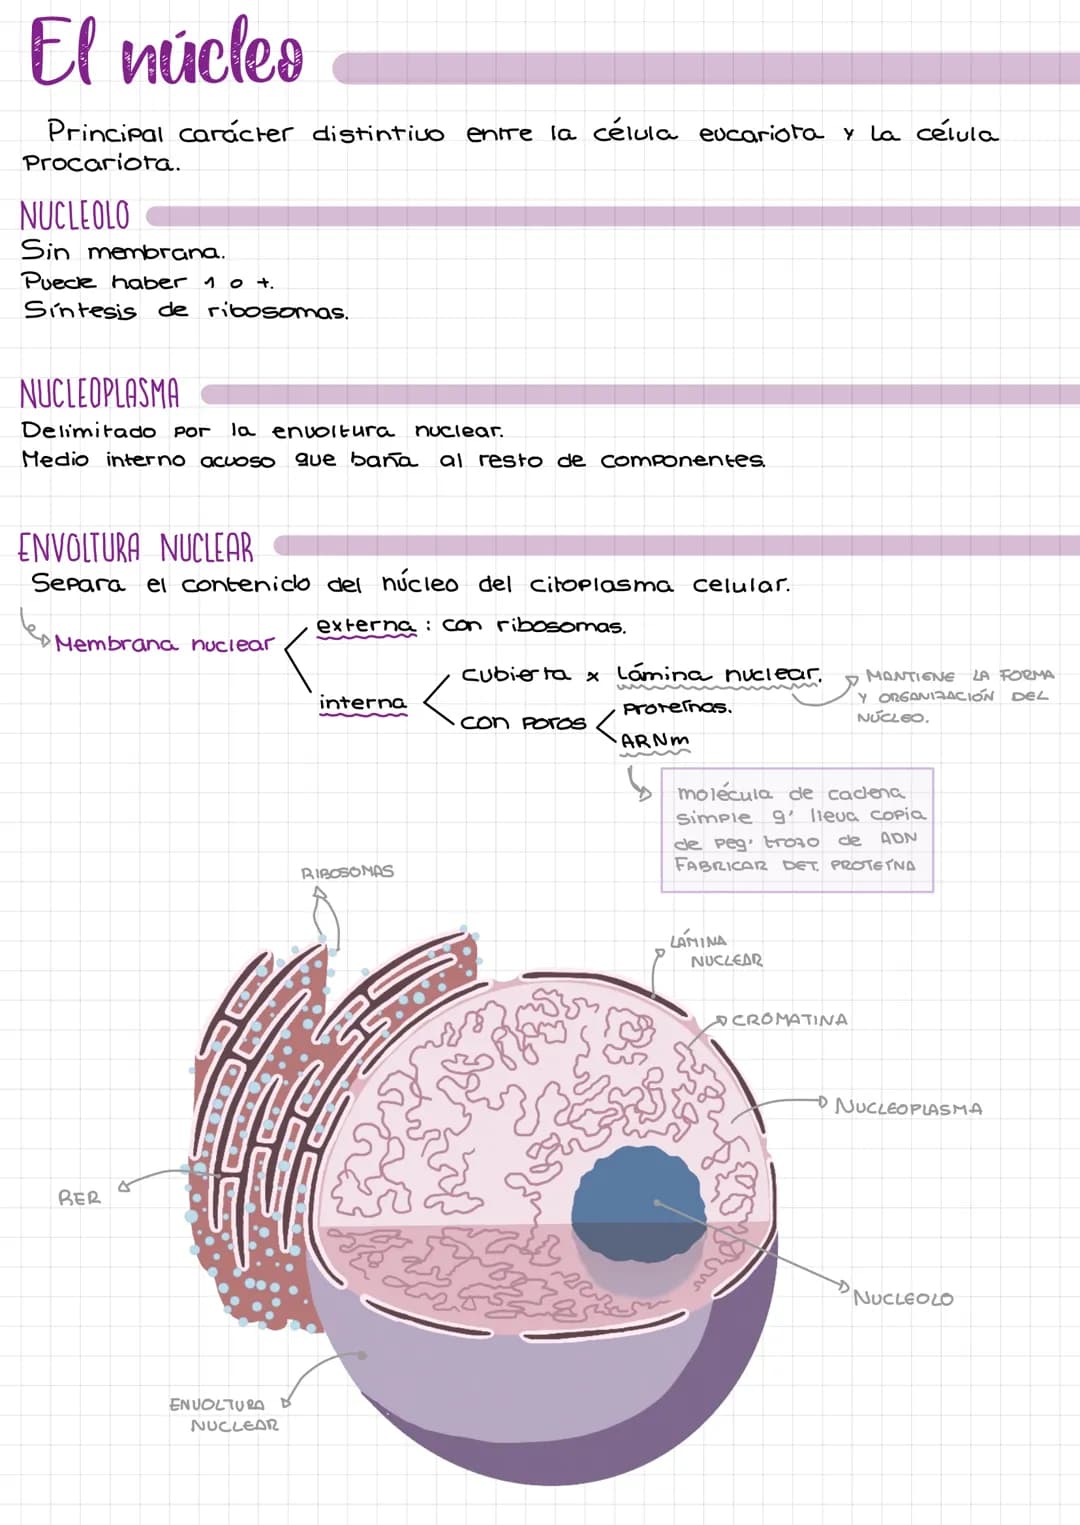 El núcleo
Principal carácter distintivo entre la célula eucariota y la célula
Procariota.
NUCLEOLO
Sin membrana.
Puede haber 1 o +.
Síntesis de ribosomas.
NUCLEOPLASMA
Delimitado por la envoltura nuclear.
Medio interno acuoso que baña al resto de componentes.
ENVOLTURA NUCLEAR
Separa el contenido del núcleo del citoplasma celular.
externa: con ribosomas.
Membrana nuclear
cubierta x lámina nuclear.
MANTIENE LA FORMA
Y ORGANIZACIÓN DEL
NÚCLEO.
interna
Proteínas.
con poros
ARNm
molécula de cadena
simple q' lleva copia
de peq. trozo de ADN
FABRICAR DET. PROTEÍNA
RIBOSOMAS
LÁMINA
NUCLEAR
CROMATINA
NUCLEOPLASMA
RER
NUCLEOLO
ENVOLTURA
NUCLEAR